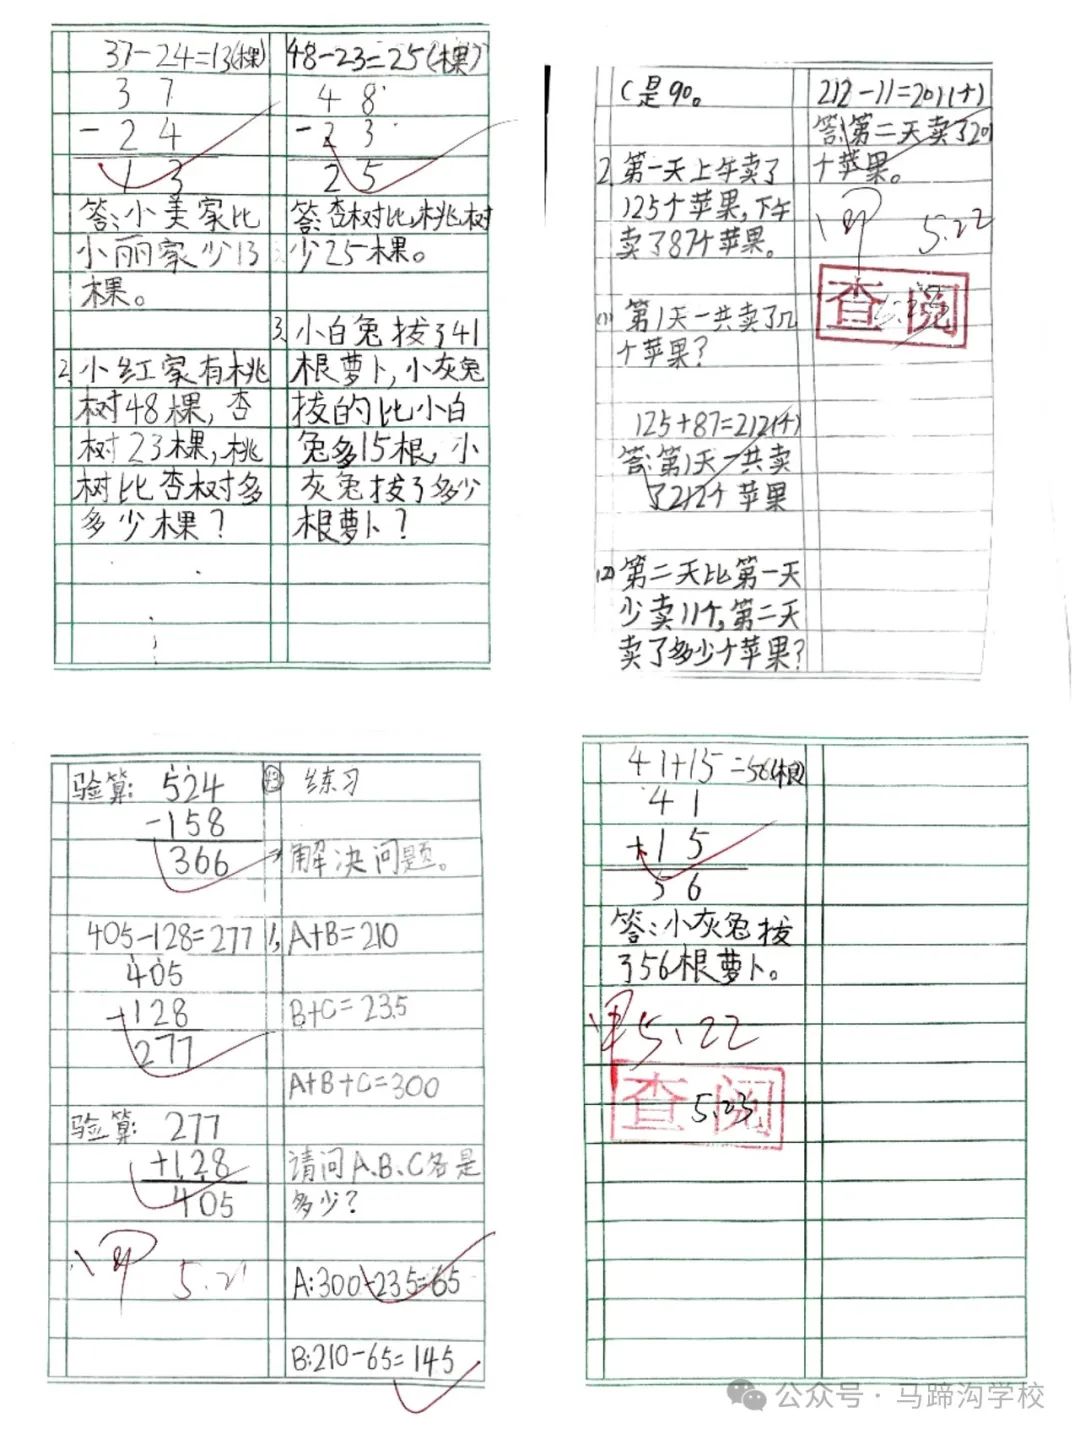 37-24=13(棵)
37
-24
13
答:小美家比
小丽家少13
棵。
2.小红家有桃
树48棵,杏
树23棵,桃
树比杏树多
多少棵?
48-23=25(棵)
48
-23
25
答:杏树比桃树
少25棵。
3.小白兔拔了41
根萝卜,小灰兔
拔的比小白
兔多15根,小
灰兔拔了多少
根萝卜?
C是90。
2.第一天上午卖了
125个苹果,下午
卖了87个苹果。
(1)第1天一共卖了几
个苹果?
125+87=212(个)
答:第1天一共卖
了212个苹果
(2)第二天比第一天
少卖11个,第二天
卖了多少个苹果?
212-11=201(个)
答:第二天卖了201
个苹果。
5.22
查阅
验算: 524
-158
366
405-128=277
405
-128
277
验算: 277
+128
405
5.21
练习
解决问题。
1, A+B=210
B+C=235
A+B+C=300
请问A、B、C各是
多少?
A:300-235=65
B:210-65=145
41+15=56(根)
41
+15
56
答:小灰兔拔
了56根萝卜。
5.22
查阅
5.23
公众号·马蹄沟学校